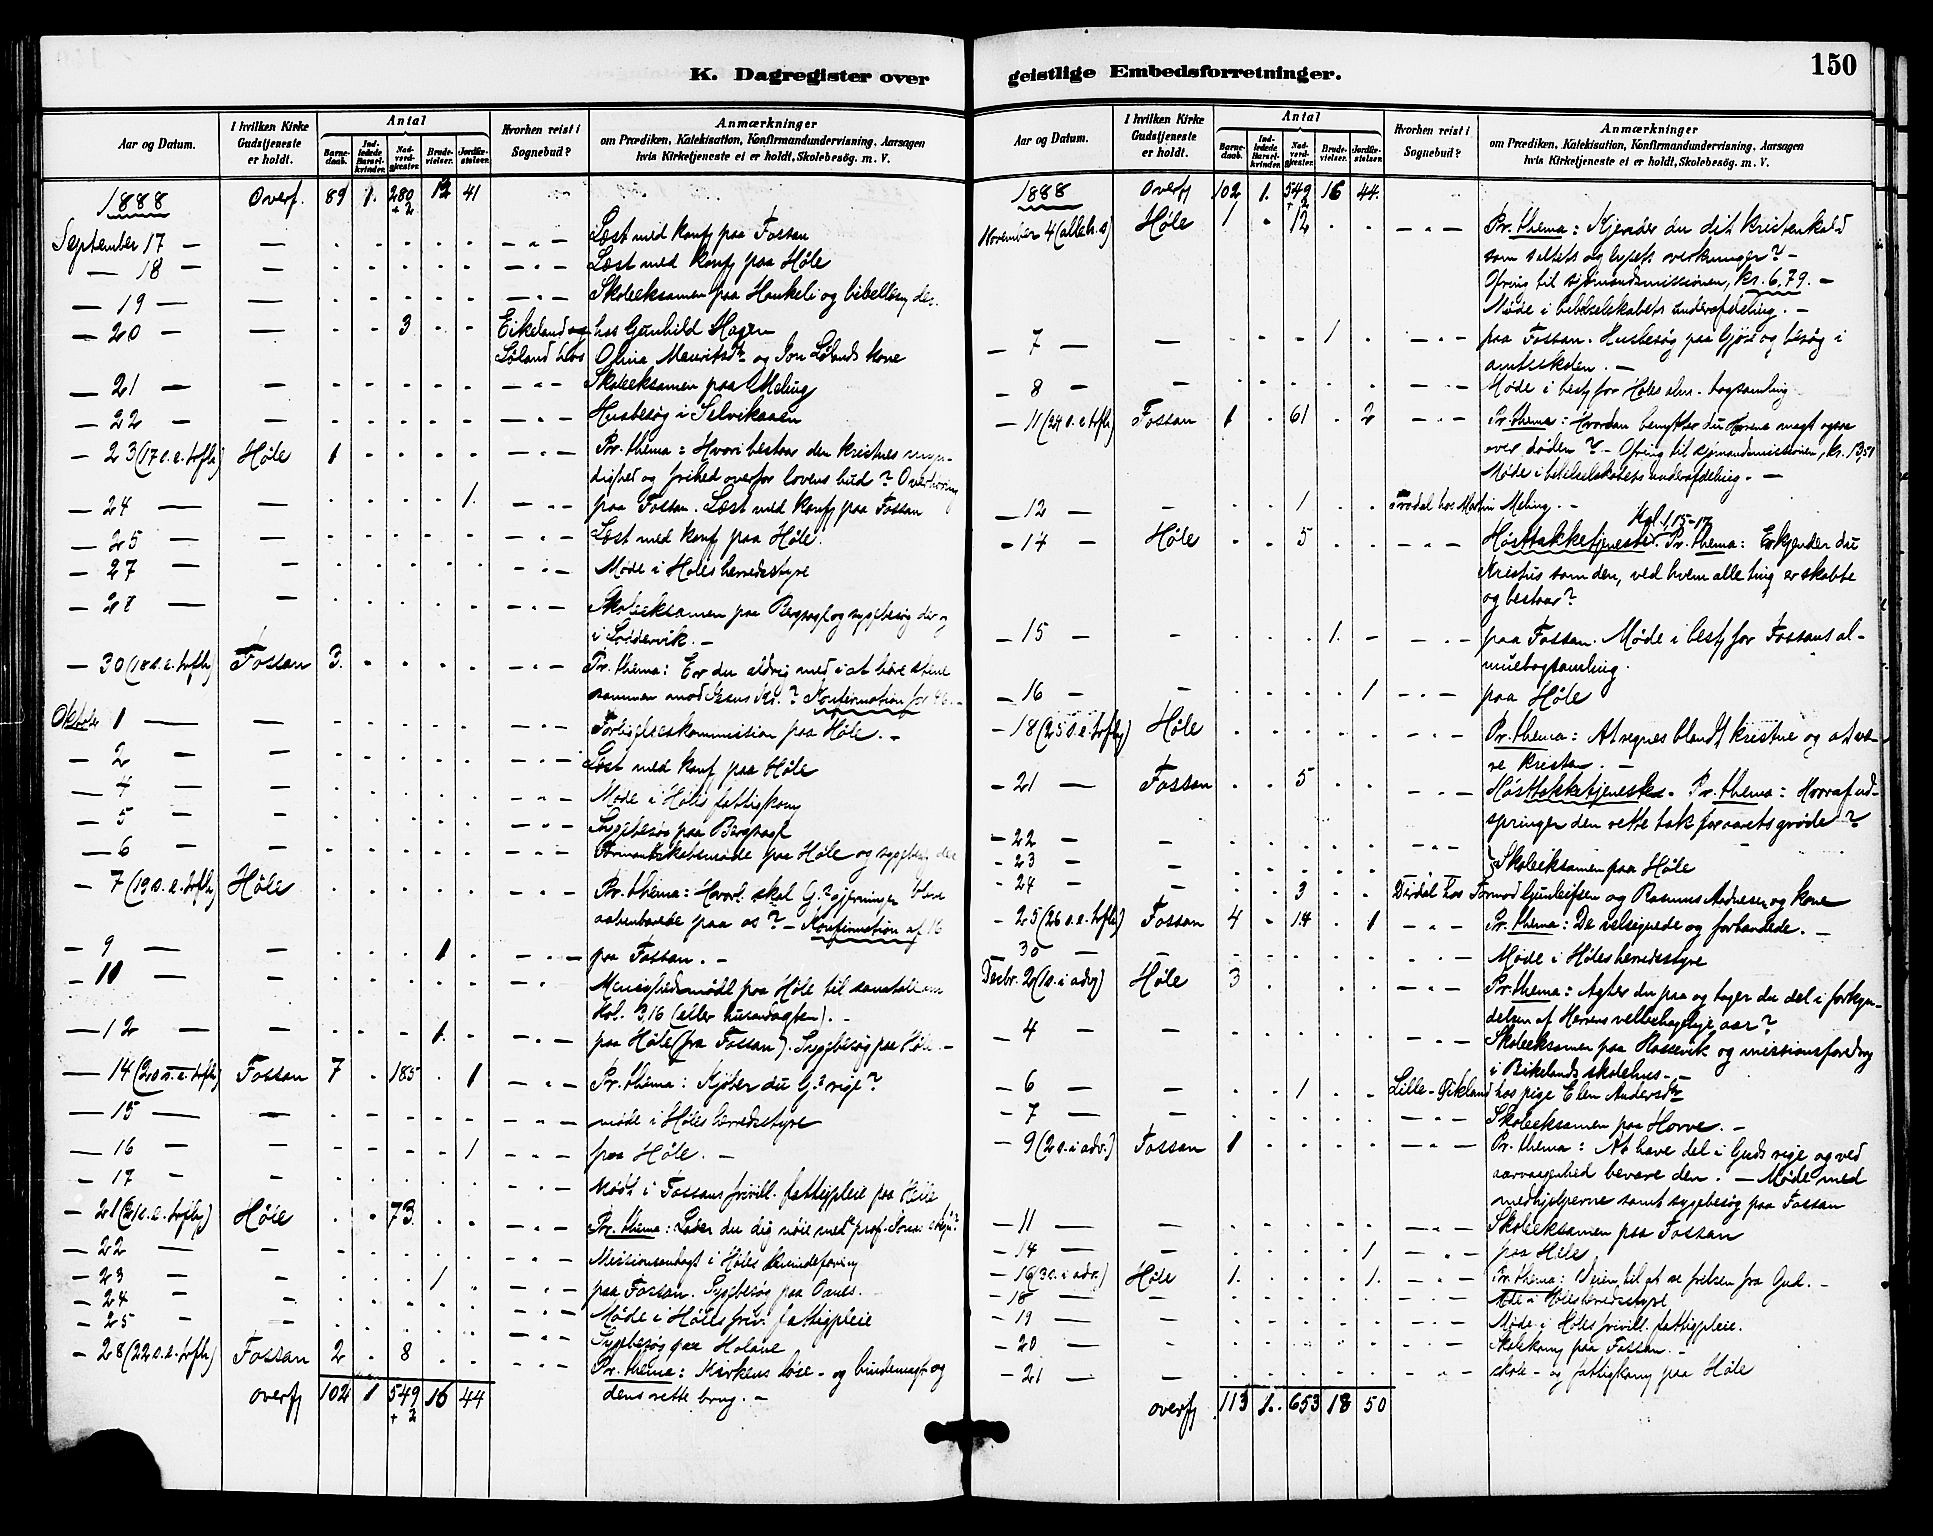 K. Dagregister over
Aar og Datum.
I hvilken Kirke Gudstjeneste er holdt.
Antal
Barnedaab.
Indledede Barselkvinder.
Nadverdgjester.
Brudevielser.
Jordfæstelser.
Hvorhen reist i Sognebud?
Anmærkninger
om Prædiken, Katekisation, Konfirmandundervisning, Aarsagen
hvis Kirketjeneste ei er holdt, Skolebesög. m. V.
1888 Overf. 89 1. 280 + 2 12 41
September 17 — — Læst med konf paa Fossan
— 18 — — Læst med konf paa Høle
— 19 — — Skoleeksamen paa Haukeli og
— 20 — — 3 Eikeland og hos Gunhild Hagen
Løland hos Olina og Jon Lølands kone
— 21 — — Skoleeksamen paa Meling
— 22 — — Husbesøg i Selviksaaen
— 23 (17 s. e. trefh) Høle 1 Pr. thema: Hvori bestaar den kristnes
og frihed overfor lovens bud?
— 24 — — 1. paa Fossan. Læst med konf paa Fossan
— 25 — — Læst med konf paa Høle.
— 27 — — Møde i Høles herredsstyre
— 28 — — Skoleeksamen paa Bergsagl og sygebesøg der og
i Loddervik. —
— 30 (18 s. e. trefh) Fossan 3. Pr. thema: Er du aldrig med i at bære stene
sammen mod Jesus Kr.? Konfirmation for
Oktober 1 — — Forligelseskommission paa Høle. —
— 2 — — Læst med konf paa Høle
— 4 — — Møde i Høles fattigkom
— 5 — — Sygebesøg paa Bergsagl
— 6 — — Formandskabsmøde paa Høle og sygebesøg der
— 7 (19 s. e. trefh) Høle Pr. thema: Hvorl. skal G.s gjerninger blive
aabenbarede paa os? — Konfirmation af 18
— 9 — — 1 paa Fossan. —
— 10 — — Menighedsmøde paa Høle til samtale om
Kol. 3,16 (eller husandagten). —
— 12 — — 1. paa Høle (fra Fossan). Sygebesøg paa Høle. —
— 14 (20 s. e. trefh) Fossan 7 185 1 Pr. thema: Kjøber du G.s rige?
— 15 — — møde i Høles herredsstyre
— 16 — — 1 paa Høle. —
— 17 — — Møde i Fossans frivill. fattigpleie paa Høle
— 21 (21 s. e. trefh) Høle 73. Pr. thema: Lader du dig nøie med prof. Jonas
— 22 — — Missionsandagt i Høles kvindeforening
— 23 — — 1 paa Fossan. Sygebesøg paa
— 24 — — Møde i Høles friv. fattigpleie
— 25 — — Sygebesøg paa Holane
— 28 (22 s. e. trefh) Fossan 2 8 Pr. thema: Kirkens løse- og bindemagt og
dens rette brug. —
overf 102 1 549 + 2 16 44
geistlige Embedsforretninger.
150
Aar og Datum.
I hvilken Kirke Gudstjeneste er holdt.
Antal
Barnedaab.
Indledede Barselkvinder.
Nadverdgjester.
Brudevielser.
Jordfæstelser.
Hvorhen reist i Sognebud?
Anmærkninger
om Prædiken, Katekisation, Konfirmandundervisning, Aarsagen
hvis Kirketjeneste ei er holdt, Skolebesög. m. V.
1888 Overf 102 1. 549 + 2 16 44.
November 4 (alleh. s) Høle 1 12 Pr. thema: Kjender du dit kristenkald
som saltets og lysets virkninger? —
Ofring til sjømandsmissionen, kr. 6,79. —
Møde i bibelselskabets underafdeling. —
— 7 — — 1 paa Fossan. Husbesøg paa Gjøse og besøg i
amtsskolen. —
— 8 — — Møde i best for Høles alm. bogsamling
— 11 (24 s. e trefh) Fossan 1 61 2 Pr. thema: Hvordan benytter du Herrens magt ogsaa
over døden? — Ofring til sjømandsmissionen, kr. 13,51
Møde i bibelselskabets underafdeling. —
— 12 — — 1 Frodal hos Martin Meling. —
Kol. 1,15-17
— 14 — Høle 5 Høsttakketjeneste. Pr. thema: Erkjender du
Kristus som den, ved hvem alle ting er skabte
og bestaar?
— 15 — — 1. paa Fossan. Møde i best for Fossans al-
muebogsamling.
— 16 — — 1 paa Høle
— 18 (25 s. e. trefh) Høle Pr. thema: At regnes blandt kristne og at væ-
re kristen. —
— 21 — Fossan 5 Høsttakketjeneste. Pr. thema: Hvoraf ud-
springer den rette tak for aarets grøde?
— 22 —
— 23 — Skoleeksamen paa Høle
— 24 — — 3 Dirdal hos Tormod Gunleifsen og Rasmus Andresen og kone
— 25 (26 s. e. trefh) Fossan 4 14 1 Pr. thema: De velsignede og forbandede. —
— 30 — — Møde i Høles herredsstyre
Decbr. 2 (1 s. i adv) Høle 3 Pr. thema: Agter du paa og tager du del i forkyn-
delsen af Herrens velbehagelige aar?
— 4 — — Skoleeksamen paa Hossevik og missionsforedrag
i Eikelands skolehus. —
— 6 — — 1 Lille-Eikland hos pige Elen Andersdtr
— 7 — — Skoleeksamen paa Horve. —
— 9 (2 s. i adv.) Fossan 1 Pr. thema: At have del i Guds rige og ved
aarvaagenhed bevare den. — Møde med
medhjelperne samt sygebesøg paa Fossan
— 11 — — Skoleeksamen paa Fossan
— 14 — — 1 paa Høle
— 16 (3 s. i adv.) Høle 1. 1. Pr. thema: Veien til at se frelsen fra Gud. —
— 18 — — Møde i Høles herredsstyre
— 19 — — Møde i Høles frivill. fattigpleie.
— 20 — — Skolekom paa Fossan. —
— 21 — — skole- og fattigkom paa Høle
overf 113 1. 653 18 50